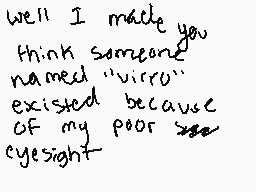 well I made you
think someone
named "virro"
existed because
of my poor
eyesight